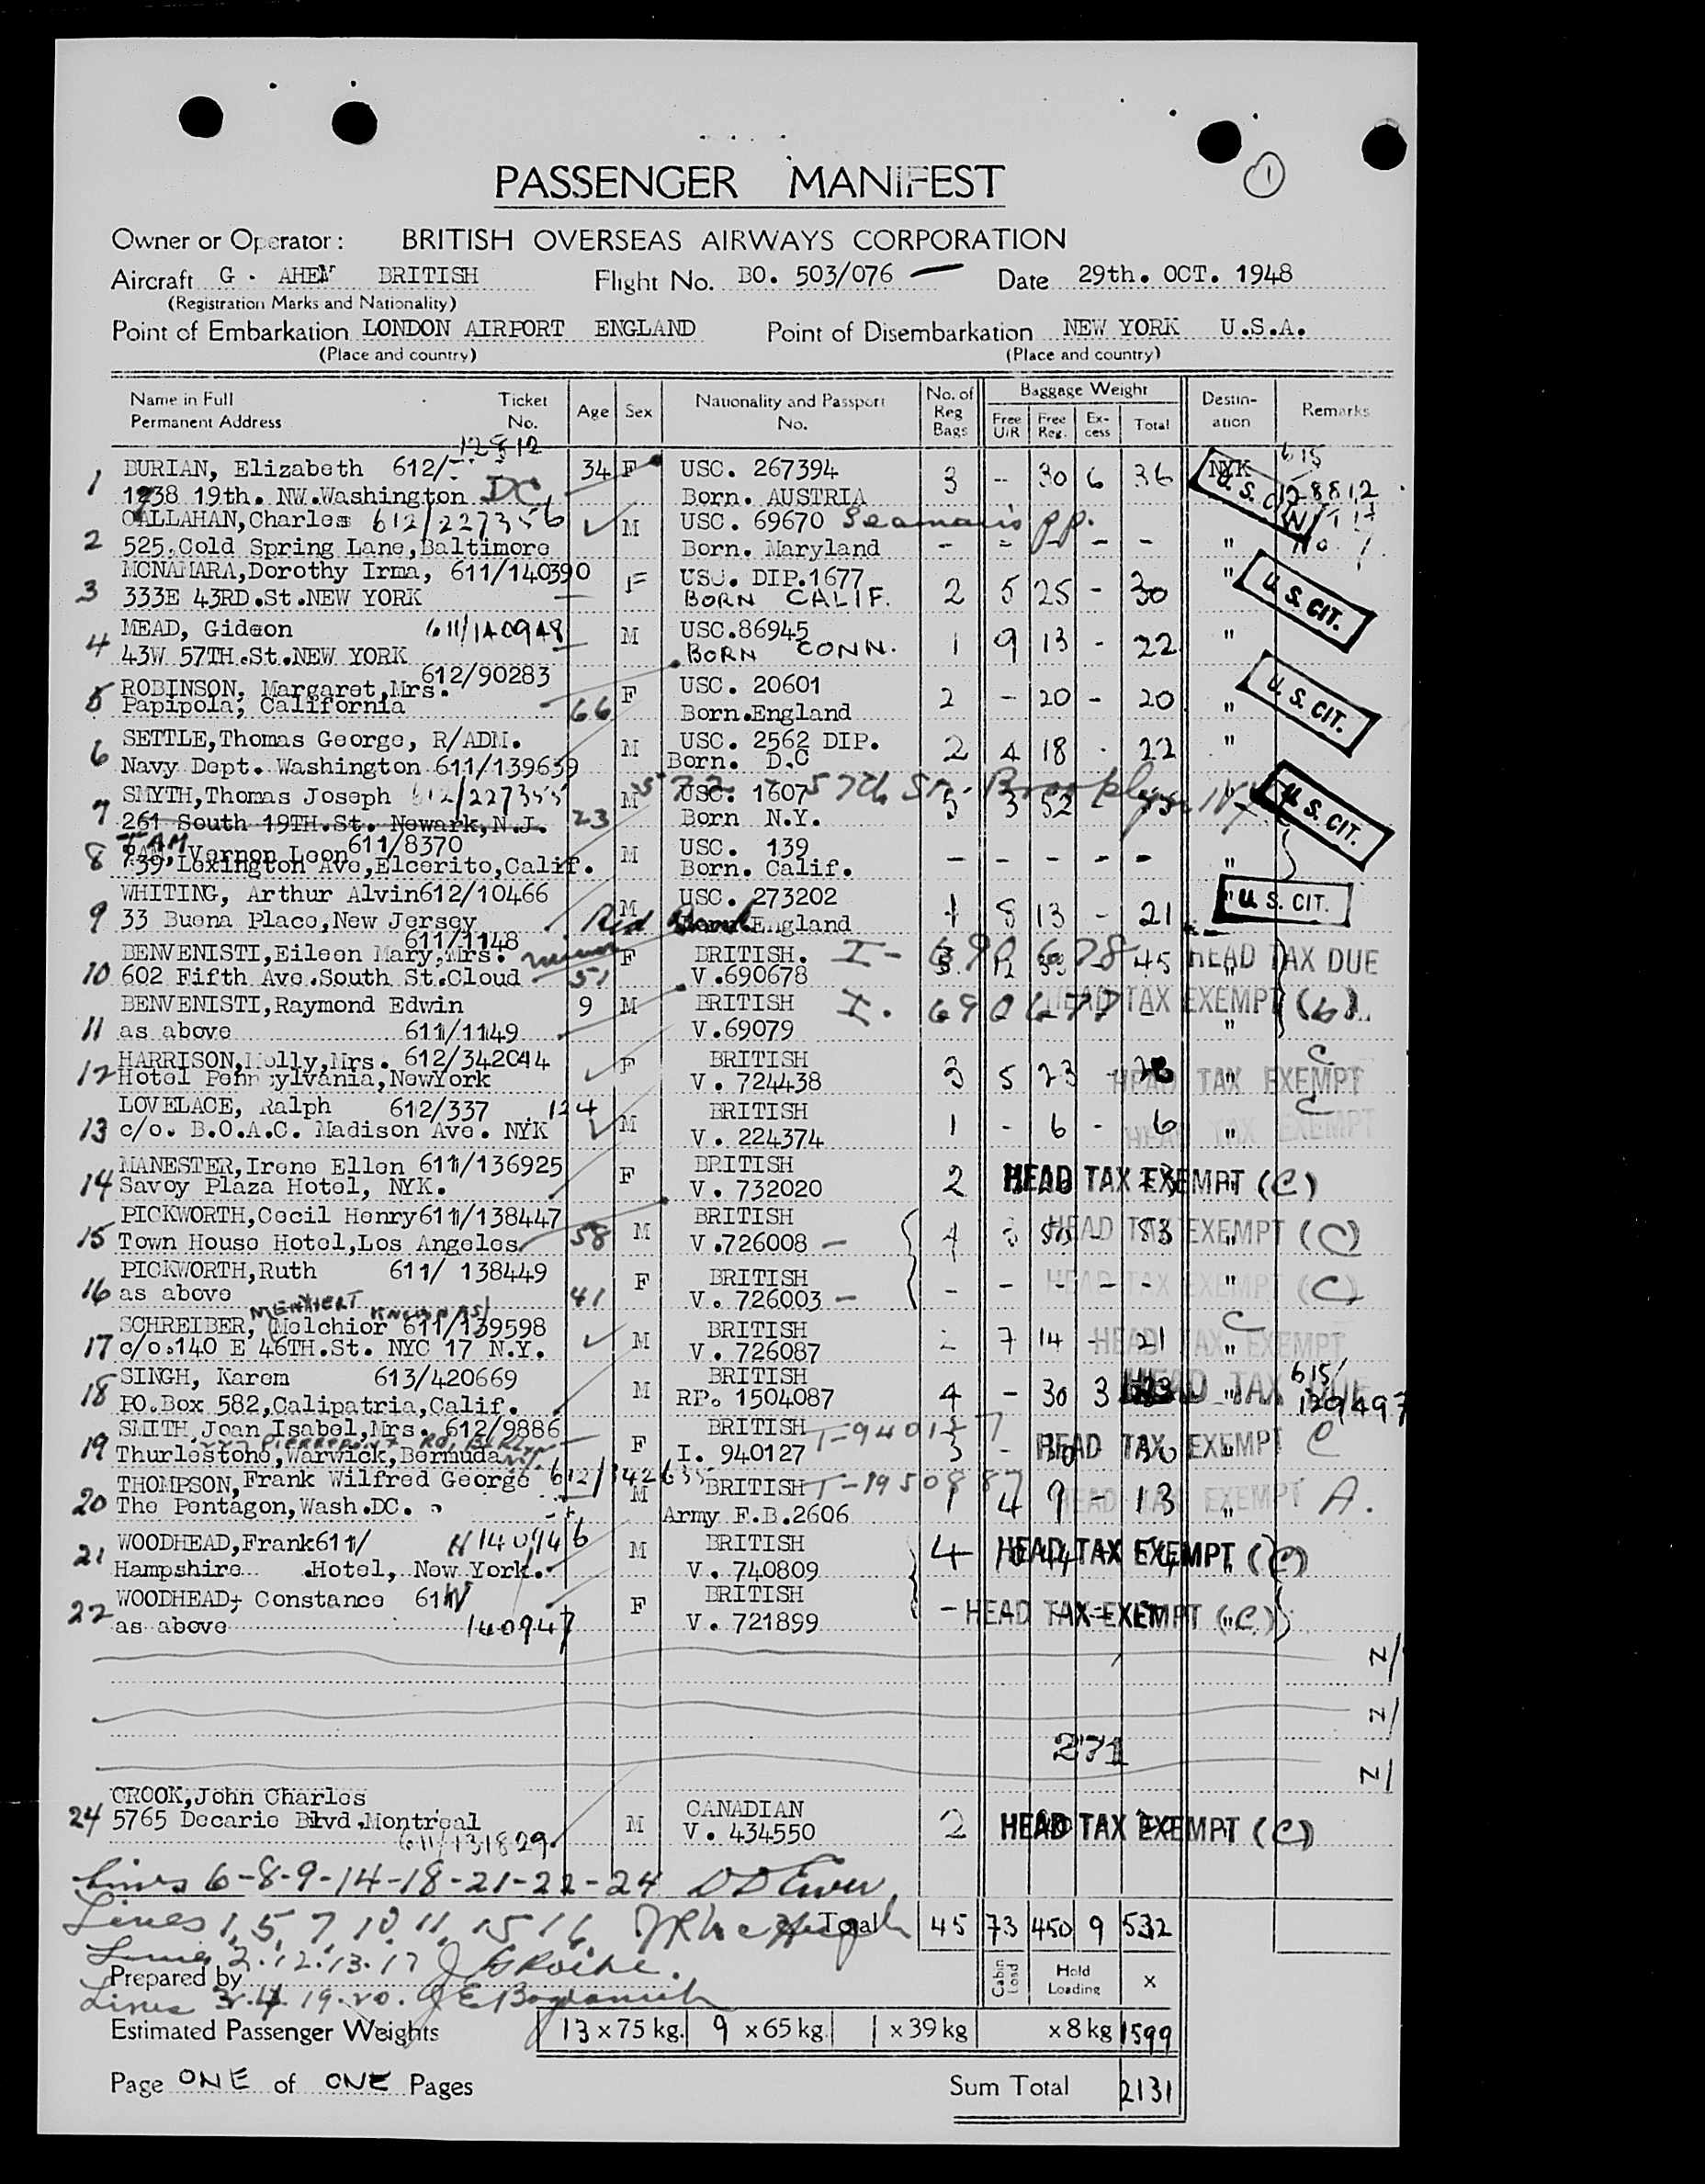 1
PASSENGER MANIFEST
Owner or Operator: BRITISH OVERSEAS AIRWAYS CORPORATION
Aircraft G. AHEM BRITISH Flight No. BO. 503/076 Date 29th. OCT. 1948
(Registration Marks and Nationality)
Point of Embarkation LONDON AIRPORT ENGLAND Point of Disembarkation NEW YORK U.S.A.
(Place and country) (Place and country)
Name in Full Ticket Age Sex Nationality and Passport No. of Baggage Weight Destin- Remarks
Permanent Address No. No. Reg Bags Free U/R Free Reg. Ex-cess Total ation
12812
1 DURIAN, Elizabeth 612/ 34 F USC. 267394 3 -- 30 6 36 NYK 615
19th. NW.Washington DC Born. AUSTRIA U.S. 128812
CALLAHAN,Charles 612/227356 M USC. 69670 Seaman's pp.
2 525.Cold Spring Lane,Baltimore Born. Maryland - - - - - "
MCNAMARA,Dorothy Irma, 611/140390 F DIP.1677 "
3 333E 43RD.St.NEW YORK BORN CALIF. 2 5 25 - 30 U.S. CIT.
MEAD, Gideon 611/140948 M USC.86945
4 43W 57TH.St.NEW YORK BORN CONN. 1 9 13 - 22 "
612/90283
5 ROBINSON, Margaret,Mrs. F USC. 20601 2 - 20 - 20 U.S. CIT.
Papipola, California 66 Born.England "
SETTLE,Thomas George, R/ADM. M USC. 2562 DIP. 2 4 18 - 22 "
6 Navy Dept. Washington 611/139639 Born. D.C
SMYTH,Thomas Joseph 612/227355 M USC. 1607 57th St. Brooklyn NY
7 261 South 19TH.St. Newark,N.J. 23 Born N.Y. 5 3 52 U.S. CIT.
TAM, Vernon Leon 611/8370 M USC. 139
8 739 Lexington Ave,Elcerito,Calif. Born. Calif. - - - - - "
WHITING, Arthur Alvin612/10466 M USC. 273202
9 33 Buena Place,New Jersey Red Bank England 1 8 13 - 21 " U.S. CIT.
611/1148
BENVENISTI,Eileen Mary,Mrs. F BRITISH. I- 690678 45 HEAD TAX DUE
10 602 Fifth Ave.South St.Cloud 51 V.690678
BENVENISTI,Raymond Edwin 9 M BRITISH I. 690677 HEAD TAX EXEMPT (b)
11 as above 611/1149 V.69079 "
HARRISON,Molly,Mrs. 612/342044 F BRITISH C
12 Hotel Pennsylvania,NewYork V. 724438 3 5 23 - 28 HEAD TAX EXEMPT
LOVELACE, Ralph 612/337 124 M BRITISH C
13 c/o. B.O.A.C. Madison Ave. NYK V. 224374 1 - 6 - 6 HEAD TAX EXEMPT
MANESTER,Irene Ellen 611/136925 F BRITISH
14 Savoy Plaza Hotel, NYK. V. 732020 2 HEAD TAX EXEMPT (C)
PICKWORTH,Cecil Henry611/138447 M BRITISH
15 Town House Hotel,Los Angeles 58 V.726008 - 83 HEAD TAX EXEMPT (C)
PICKWORTH,Ruth 611/ 138449 F BRITISH
16 as above 41 V. 726003 - - - - - - HEAD TAX EXEMPT (C)
KNOWN AS)
SCHREIBER, (Melchior 611/139598 M BRITISH C
17 c/o.140 E 46TH.St. NYC 17 N.Y. V. 726087 7 14 - 21 HEAD TAX EXEMPT
SINGH, Karem 613/420669 M BRITISH 615/
18 PO.Box 582,Calipatria,Calif. RP. 1504087 4 - 30 3 HEAD TAX DUE 129497
SMITH,Joan Isabel,Mrs. 612/9886 F BRITISH I-940127
19 Thurlestone,Warwick,Bermuda I. 940127 3 - 30 HEAD TAX EXEMPT C
THOMPSON,Frank Wilfred George M BRITISH
20 The Pentagon,Wash.DC. Army F.B.2606 1 4 9 - 13 HEAD TAX EXEMPT A.
WOODHEAD,Frank611/ 140946 M BRITISH
21 Hampshire Hotel, New York. V. 740809 4 HEAD TAX EXEMPT (C)
WOODHEAD, Constance 611/ F BRITISH
22 as above 140947 V. 721899 - HEAD TAX EXEMPT (C)
271
CROOK,John Charles CANADIAN
24 5765 Decarie Blvd.Montreal M V. 434550 2 HEAD TAX EXEMPT (C)
611/131829
Lines 6-8-9-14-18-21-22-24
Lines 1, 5, 7, 10, 11, 15, 16, Total 45 73 450 9 532
Lines 2.12.13.17
Prepared by Cabin Load Hold Loading x
Lines 3.4.19.20.
Estimated Passenger Weights 13 x 75 kg. 9 x 65 kg 1 x 39 kg x 8 kg 1599
Page ONE of ONE Pages Sum Total 2131